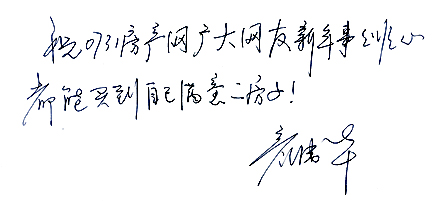 祝0731房产网广大网友新年事业顺心
都能买到自己满意二房子!